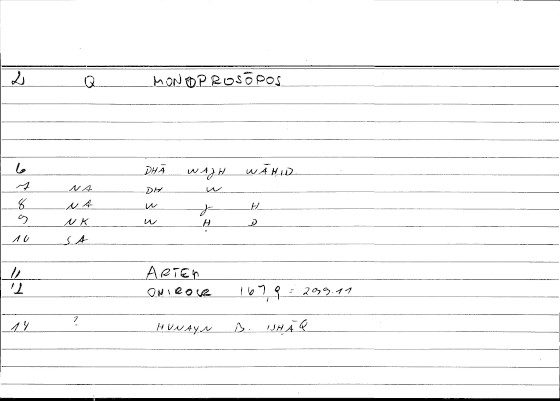 2 Q MONOPROSŌPOS
6 DHĀ WAJH WĀḤID
7 NA DH W
8 NA W J H
9 NK W Ḥ D
10 SA
11 ARTEM
12 ONIROCR 167,9 = 299.11
14 ? ḤUNAYN B. ISḤĀQ